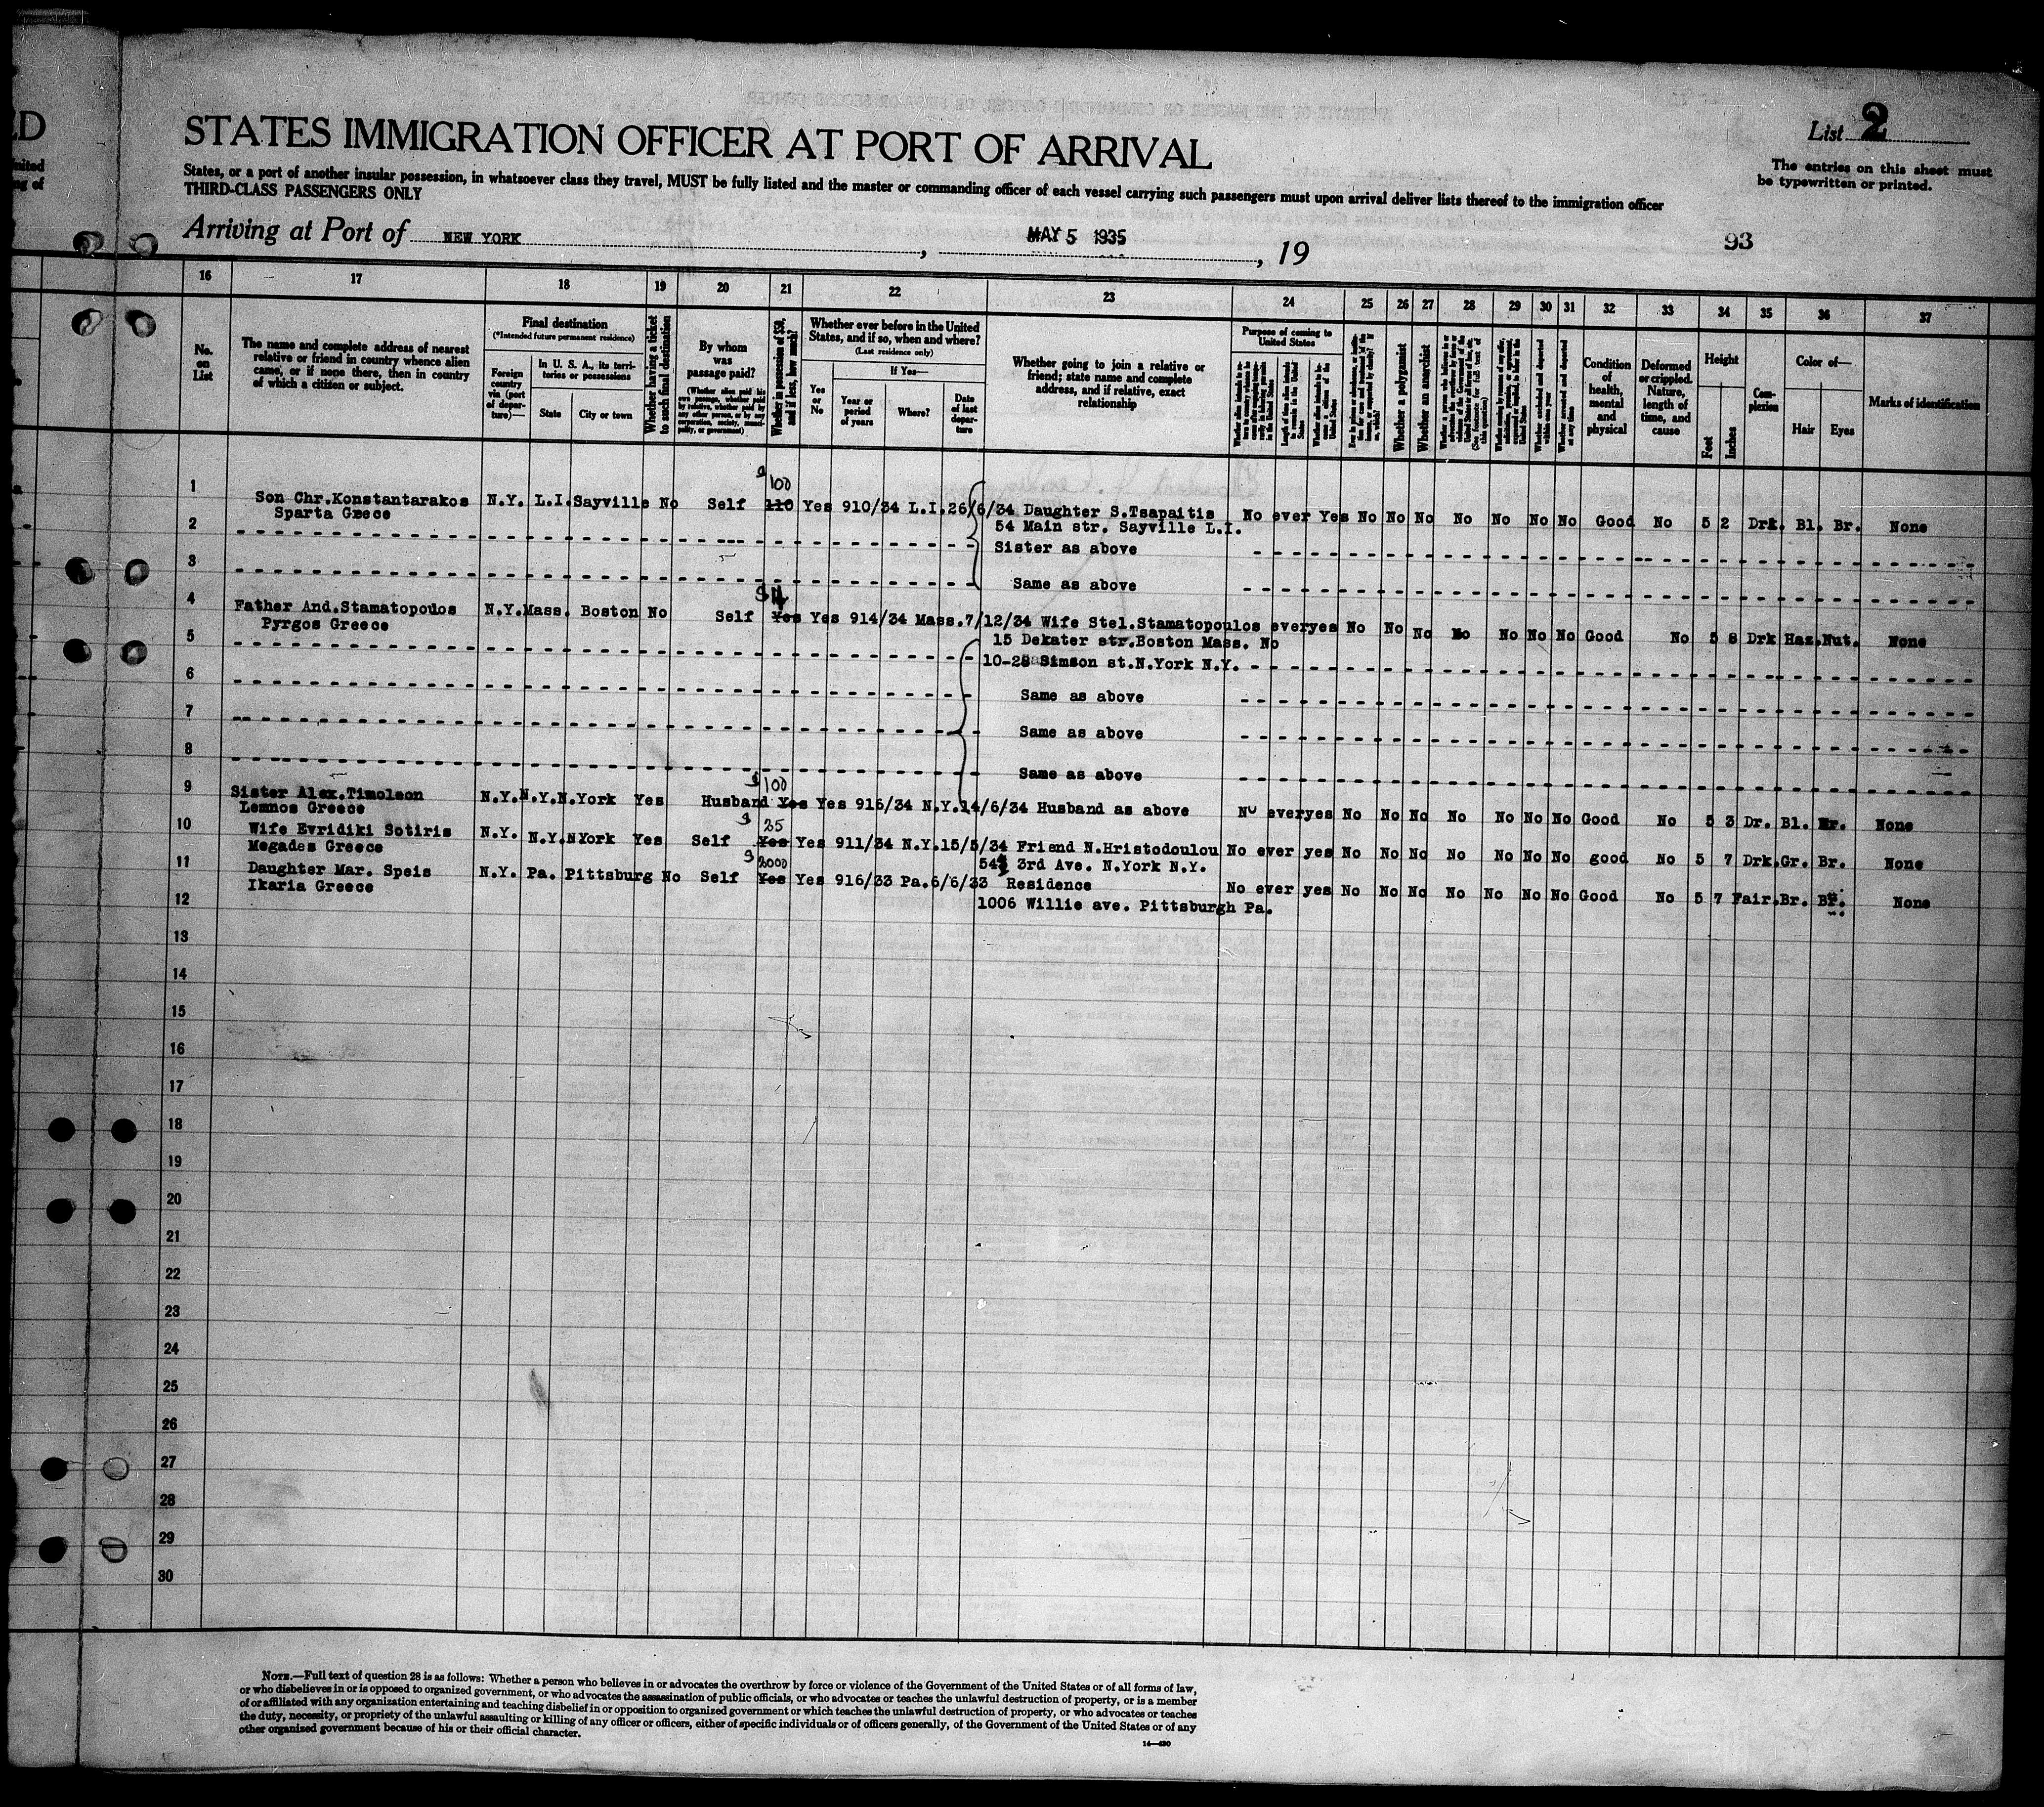 D
STATES IMMIGRATION OFFICER AT PORT OF ARRIVAL
List 2
The entries on this sheet must
be typewritten or printed.
States, or a port of another insular possession, in whatsoever class they travel, MUST be fully listed and the master or commanding officer of each vessel carrying such passengers must upon arrival deliver lists thereof to the immigration officer
THIRD-CLASS PASSENGERS ONLY
Arriving at Port of NEW YORK, MAY 5 1935, 19
93
16 17 18 19 20 21 22 23 24 25 26 27 28 29 30 31 32 33 34 35 36 37
No. on List
The name and complete address of nearest relative or friend in country whence alien came, or if none there, then in country of which a citizen or subject.
Final destination
(*Intended future permanent residence)
Foreign country via (port of departure)—
In U. S. A., its territories or possessions
State
City or town
Whether having a ticket to such final destination
By whom was passage paid?
(Whether alien paid his own passage, whether paid by relative, whether paid by any other person, or by any corporation, society, municipality, or government)
Whether in possession of $50, and if less, how much?
Whether ever before in the United States, and if so, when and where?
(Last residence only)
Yes or No
If Yes—
Year or period of years
Where?
Date of last departure
Whether going to join a relative or friend; state name and complete address, and if relative, exact relationship
Purpose of coming to United States
Length of time alien intends to remain in the United States
Whether a polygamist
Whether an anarchist
Whether excluded and deported within one year
Whether arrested and deported at any time
Condition of health, mental and physical
Deformed or crippled. Nature, length of time, and cause
Height
Feet
Inches
Complexion
Color of—
Hair
Eyes
Marks of identification
1 Son Chr.Konstantarakos N.Y. L.I.Sayville No Self $ 100 110 Yes 910/34 L.I.26/6/34 Daughter S.Tsapaitis No ever Yes No No No No No No No Good No 5 2 Drk. Bl. Br. None
Sparta Grece 54 Main str. Sayville L.I.
2 Sister as above
3 Same as above
4 Father And.Stamatopoulos N.Y.Mass. Boston No Self $ Yes Yes 914/34 Mass.7/12/34 Wife Stel.Stamatopoulos everyes No No No No No No No Good No 5 8 Drk Haz.Nut. None
Pyrgos Greece 15 Dekater str.Boston Mass. No
5 10-28 Simson st.N.York N.Y.
6 Same as above
7 Same as above
8 Same as above
9 Sister Alex.Timoleon N.Y.N.Y.N.York Yes Husband $ 100 Yes Yes 916/34 N.Y.14/6/34 Husband as above No everyes No No No No No No No Good No 5 3 Dr. Bl. Br. None
Lemnos Greece
10 Wife Evridiki Sotiris N.Y. N.Y.NYork Yes Self $ 25 Yes Yes 911/34 N.Y.15/5/34 Friend N.Hristodoulou No ever yes No No No No No No No good No 5 7 Drk.Gr. Br. None
Megades Greece 3rd Ave. N.York N.Y.
11 Daughter Mar. Speis N.Y. Pa. Pittsburg No Self $ 2000 Yes Yes 916/33 Pa.6/6/33 Residence No ever yes No No No No No No No Good No 5 7 Fair.Br. Br. None
Ikaria Greece 1006 Willie ave. Pittsburgh Pa.
12
13
14
15
16
17
18
19
20
21
22
23
24
25
26
27
28
29
30
NOTE.—Full text of question 28 is as follows: Whether a person who believes in or advocates the overthrow by force or violence of the Government of the United States or of all forms of law,
or who disbelieves in or is opposed to organized government, or who advocates the assassination of public officials, or who advocates or teaches the unlawful destruction of property, or is a member
of or affiliated with any organization entertaining and teaching disbelief in or opposition to organized government or which teaches the unlawful destruction of property, or who advocates or teaches
the duty, necessity, or propriety of the unlawful assaulting or killing of any officer or officers, either of specific individuals or of officers generally, of the Government of the United States or of any
other organized government because of his or their official character.
14—430